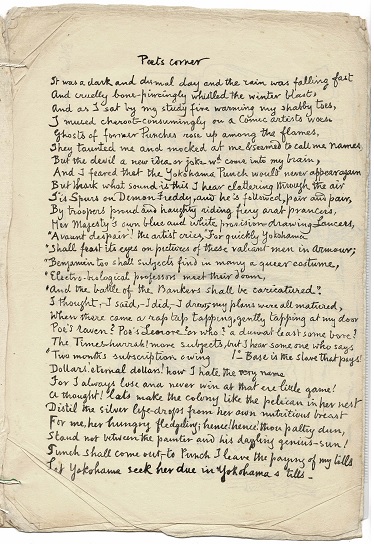 Poets corner
It was a dark and dismal day and the rain was falling fast
And cruelly bone-piercingly whistled the winter blast,
And as I sat by my study fire warming my shabby toes,
I mused cheroot-consumingly on a Comic artists woes.
Ghosts of former Punches rose up among the flames,
They taunted me and mocked at me & seemed to call me names,
But the devil a new idea, or joke wd come into my brain,
And I feared that the Yokohama Punch would never appear again
But hark what sound is this I hear clattering through the air
T'is Spurs on Demon Freddy, and he is followed, pair and pair,
By troopers proud and haughty riding fiery arab prancers,
Her Majesty's own blue and white provision-drawing Lancers,
"Avaunt despair! the artist cries, For quickly Yokohama
"Shall feast its eyes on pictures of these valiant men in armour;
"Benjamin too shall subjects find in many a queer costume,
"Electro-biological professors meet their doom,
"And the battle of the Bankers shall be caricatured".
I thought, I said,-I did,-I drew, my plans were all matured,
When there came a rap tap tapping, gently tapping at my door
Poe's raven? Poe's Lenore or who? a dun at least some bore?
The Times-hurrah! more subjects, but I hear some one who says
"Two month's subscription owing !- Base is the slave that pays!
Dollars! eternal dollars! how I hate the very name
For I always lose and never win at that little game!
A thought! Lets make the colony like the pelican in her nest
Distil the silver life-drops from her own nutritious breast
For me, her hungry fledgeling; hence! hence! thou paltry dun,
Stand not between the painter and his daphny genius-sun!
Punch shall come out,-to Punch I leave the paying of my bills
Let Yokohama seek her due in Yokohama's tills-